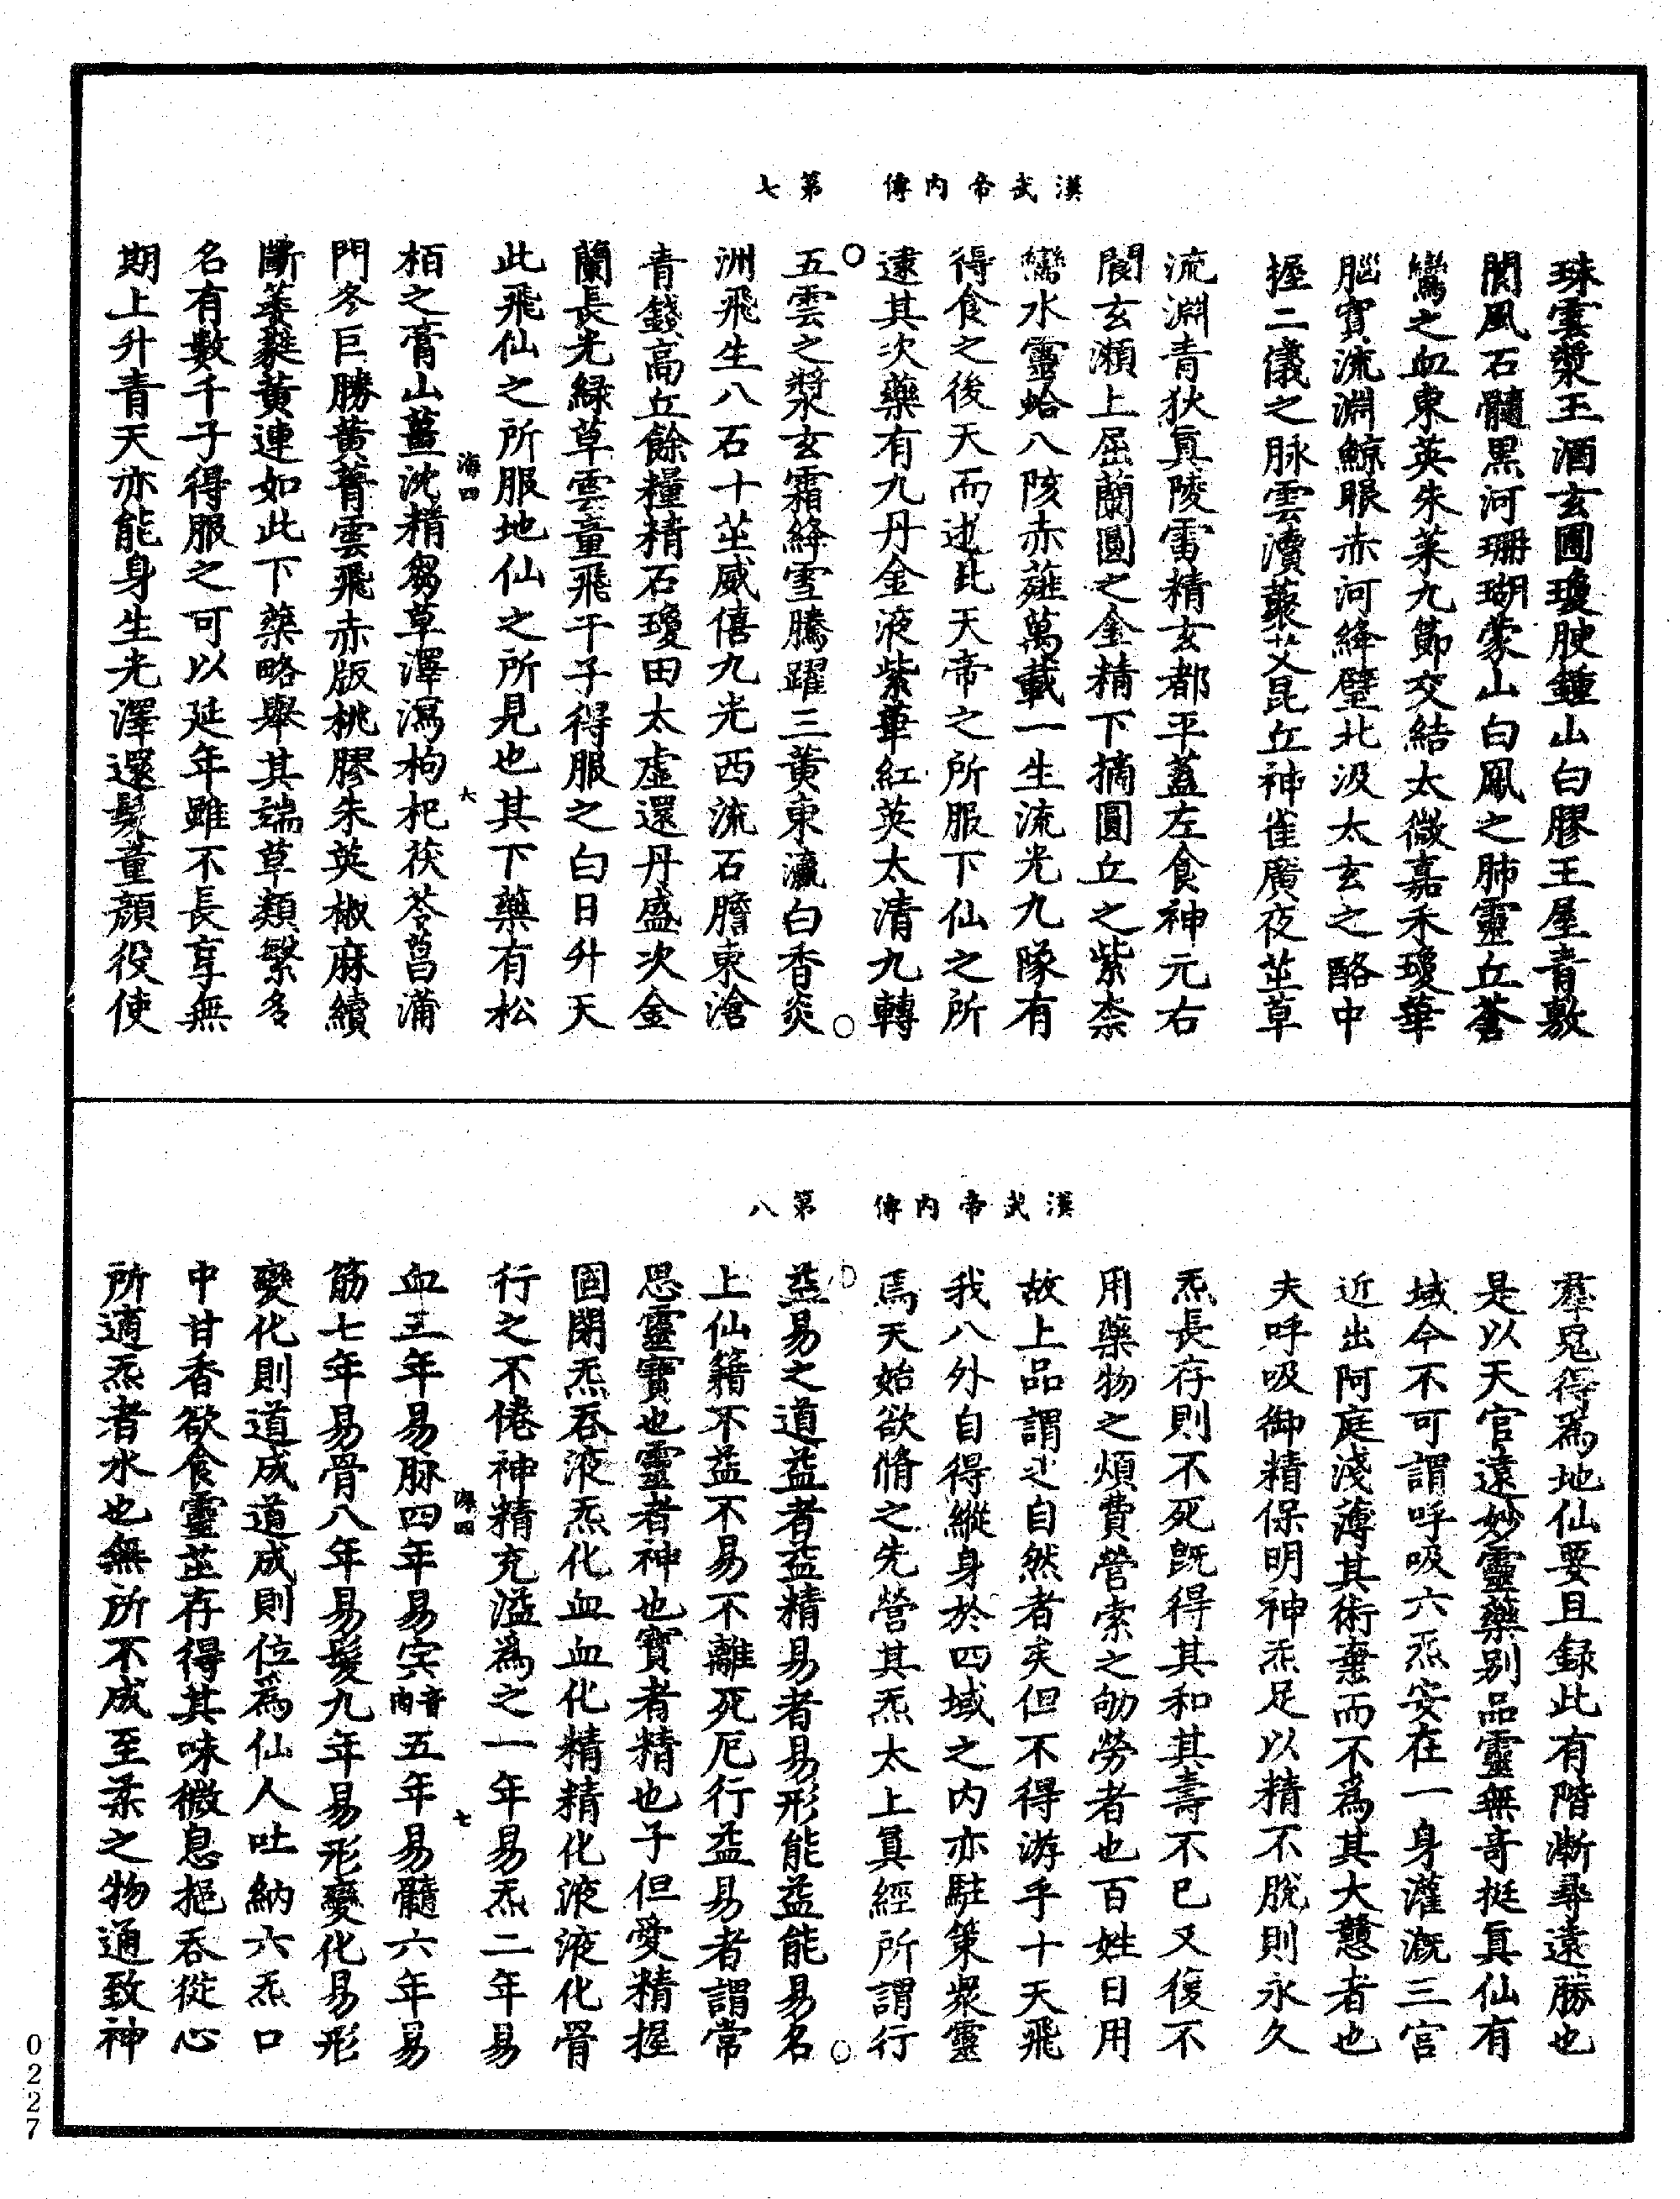 漢武帝內傳　第七
珠雲漿玉酒玄圃瓊腴鍾山白膠王屋青敷
閬風石髓黑河珊瑚蒙山白鳳之肺靈丘蒼
鸞之血東英朱菜九節交結太微嘉禾瓊華
腦實流淵鯨眼赤河絳璧北汲太玄之酪中
握二儀之脉雲瀆蘂艾昆丘神雀廣夜茎草
流淵青狄真陵雷精玄都平蓋左食神元右
閬玄瀨上屈蘭圓之金精下摘圓丘之紫柰
鸞水靈蛤八陔赤薤萬載一生流光九隊有
得食之後天而逝此天帝之所服下仙之所
逮其次藥有九丹金液紫華紅英太清九轉
五雲之漿玄霜絳雪騰躍三黃東瀛白香炎
洲飛生八石十茎威僖九光西流石膽東滄
青錢高丘餘糧精石瓊田太虛還丹盛次金
蘭長光綠草雲童飛干子得服之白日升天
此飛仙之所服地仙之所見也其下藥有松
海四　六
栢之膏山薑沈精芻草澤瀉枸杞茯苓菖蒲
門冬巨勝黃菁雲飛赤版桃膠朱英椒麻續
斷葳蕤黃連如此下藥略舉其端草類繁多
名有數千子得服之可以延年雖不長享無
期上升青天亦能身生光澤還髮童顏役使
漢武帝內傳　第八
羣鬼得為地仙要且録此有階漸尋遠勝也
是以天官遠妙靈藥别品靈無奇挺真仙有
域今不可謂呼吸六炁安在一身灌溉三宮
近出阿庭淺薄其術棄而不為其大戇者也
夫呼吸御精保明神炁足以精不脫則永久
炁長存則不死既得其和其壽不已又復不
用藥物之煩費營索之劬勞者也百姓日用
故上品謂之自然者矣但不得游乎十天飛
我八外自得縱身於四域之内亦駐策衆靈
焉天始欲脩之先營其炁太上真經所謂行
益易之道益者益精易者易形能益能易名
上仙籍不益不易不離死厄行益易者謂常
思靈寶也靈者神也寶者精也子但愛精握
固閉炁吞液炁化血血化精精化液液化骨
行之不倦神精充溢為之一年易炁二年易
海四　七
血三年易脉四年易宍音肉五年易髓六年易
筋七年易骨八年易髮九年易形變化易形
變化則道成道成則位為仙人吐納六炁口
中甘香欲食靈茎存得其味微息挹吞從心
所適炁者水也無所不成至柔之物通致神
0227